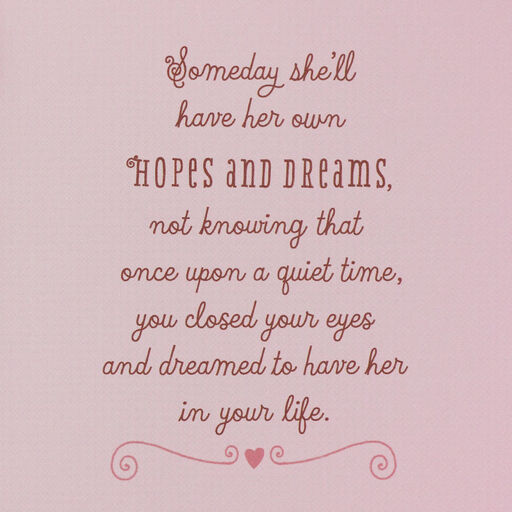 Someday she'll
have her own
HOPES AND DREAMS,
not knowing that
once upon a quiet time,
you closed your eyes
and dreamed to have her
in your life.